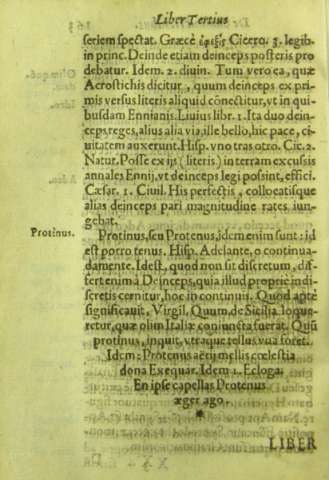 Liber Tertius
seriem spectat. Græcè ἐφεξῆς Cicero. 3. legib.
in princ. Deinde etiam deinceps posteris pro
debatur. Idem. 2. diuin. Tum vero ea, quæ
Acrostichis dicitur, quum deinceps ex pri-
mis versus literis aliquid cõnectitur, vt in qui-
busdam Ennianis. Liuius libr. 1. Ita duo dein-
ceps, reges, alius alia via, ille bello, hic pace, ci-
uitatem auxerunt. Hisp. vno tras otro. Cic. 2.
Natur. Posse ex ijs (literis) in terram excussis
annales Ennij, vt deinceps legi possint, effici.
Cæsar. 1. Ciuil. His perfectis, collocatisque
alias deinceps pari magnitudine rates iun-
gebat.
Protinus.
Protinus, seu Protenus, idem enim sunt: id
est porro tenus. Hisp. Adelante, o continua-
damente. Idest, quod non sit discretum, dif-
fert enim à Deinceps, quia illud propriè in di-
scretis cernitur, hoc in continuis. Quod aptè
significauit, Virgil. Quum, de Sicilia loque-
retur, quæ olim Italiæ coniuncta fuerat. Quũ
protinus, inquit, vtraque tellus vna foret.
Idem: Protenus aërij mellis cœlestia
dona Exequar. Idem 1. Ecloga.
En ipse capellas Protenus
æger ago.
*
LIBER